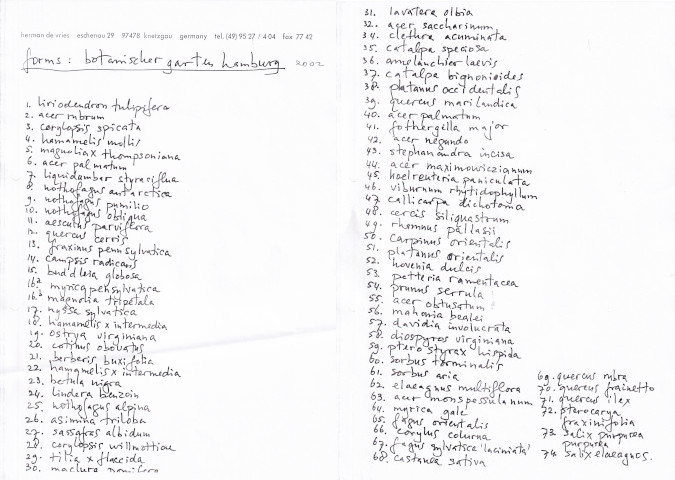 herman de vries eschenau 29 97478 knetzgau germany tel. (49) 95 27 / 4 04 fax 77 42
forms: botanischer garten hamburg 2002
1. liriodendron tulipifera
2. acer rubrum
3. corylopsis spicata
4. hamamelis mollis
5. magnolia x thompsoniana
6. acer palmatum
7. liquidambar styraciflua
8. nothofagus antarctica
9. nothofagus pumilio
10. nothofagus obliqua
11. aesculus parviflora
12. quercus cerris
13. fraxinus pennsylvatica
14. campsis radicans
15. buddleia globosa
16.a myrica pensylvatica
16.b magnolia tripetala
17. nyssa sylvatica
18. hamamelis x intermedia
19. ostrya virginiana
20. cotinus obovatus
21. berberis buxifolia
22. hamamelis x intermedia
23. betula nigra
24. lindera benzoin
25. nothofagus alpina
26. asimina triloba
27. sassafras albidum
28. corylopsis willmottiae
29. tilia x flaccida
30. maclura pomifera
31. lavatera olbia
32. acer saccharinum
34. clethra acuminata
35. catalpa speciosa
36. amelanchier laevis
37. catalpa bignonioides
38. platanus occidentalis
39. quercus marilandica
40. acer palmatum
41. fothergilla major
42. acer negundo
43. stephanandra incisa
44. acer maximowiczianum
45. koelreuteria paniculata
46. viburnum rhytidophyllum
47. callicarpa dichotoma
48. cercis siliquastrum
49. rhamnus pallasii
50. carpinus orientalis
51. platanus orientalis
52. hovenia dulcis
53. petteria ramentacea
54. prunus serrula
55. acer obtusatum
56. mahonia bealei
57. davidia involucrata
58. diospyros virginiana
59. pterostyrax hispida
60. sorbus torminalis
61. sorbus aria
62. elaeagnus multiflora
63. acer monspessulanum
64. myrica gale
65. fagus orientalis
66. corylus colurna
67. fagus sylvatica 'laciniata'
68. castanea sativa
69. quercus rubra
70. quercus frainetto
71. quercus ilex
72. pterocarya
fraxinifolia
73. salix purpurea
purpurea
74. salix elaeagnos.